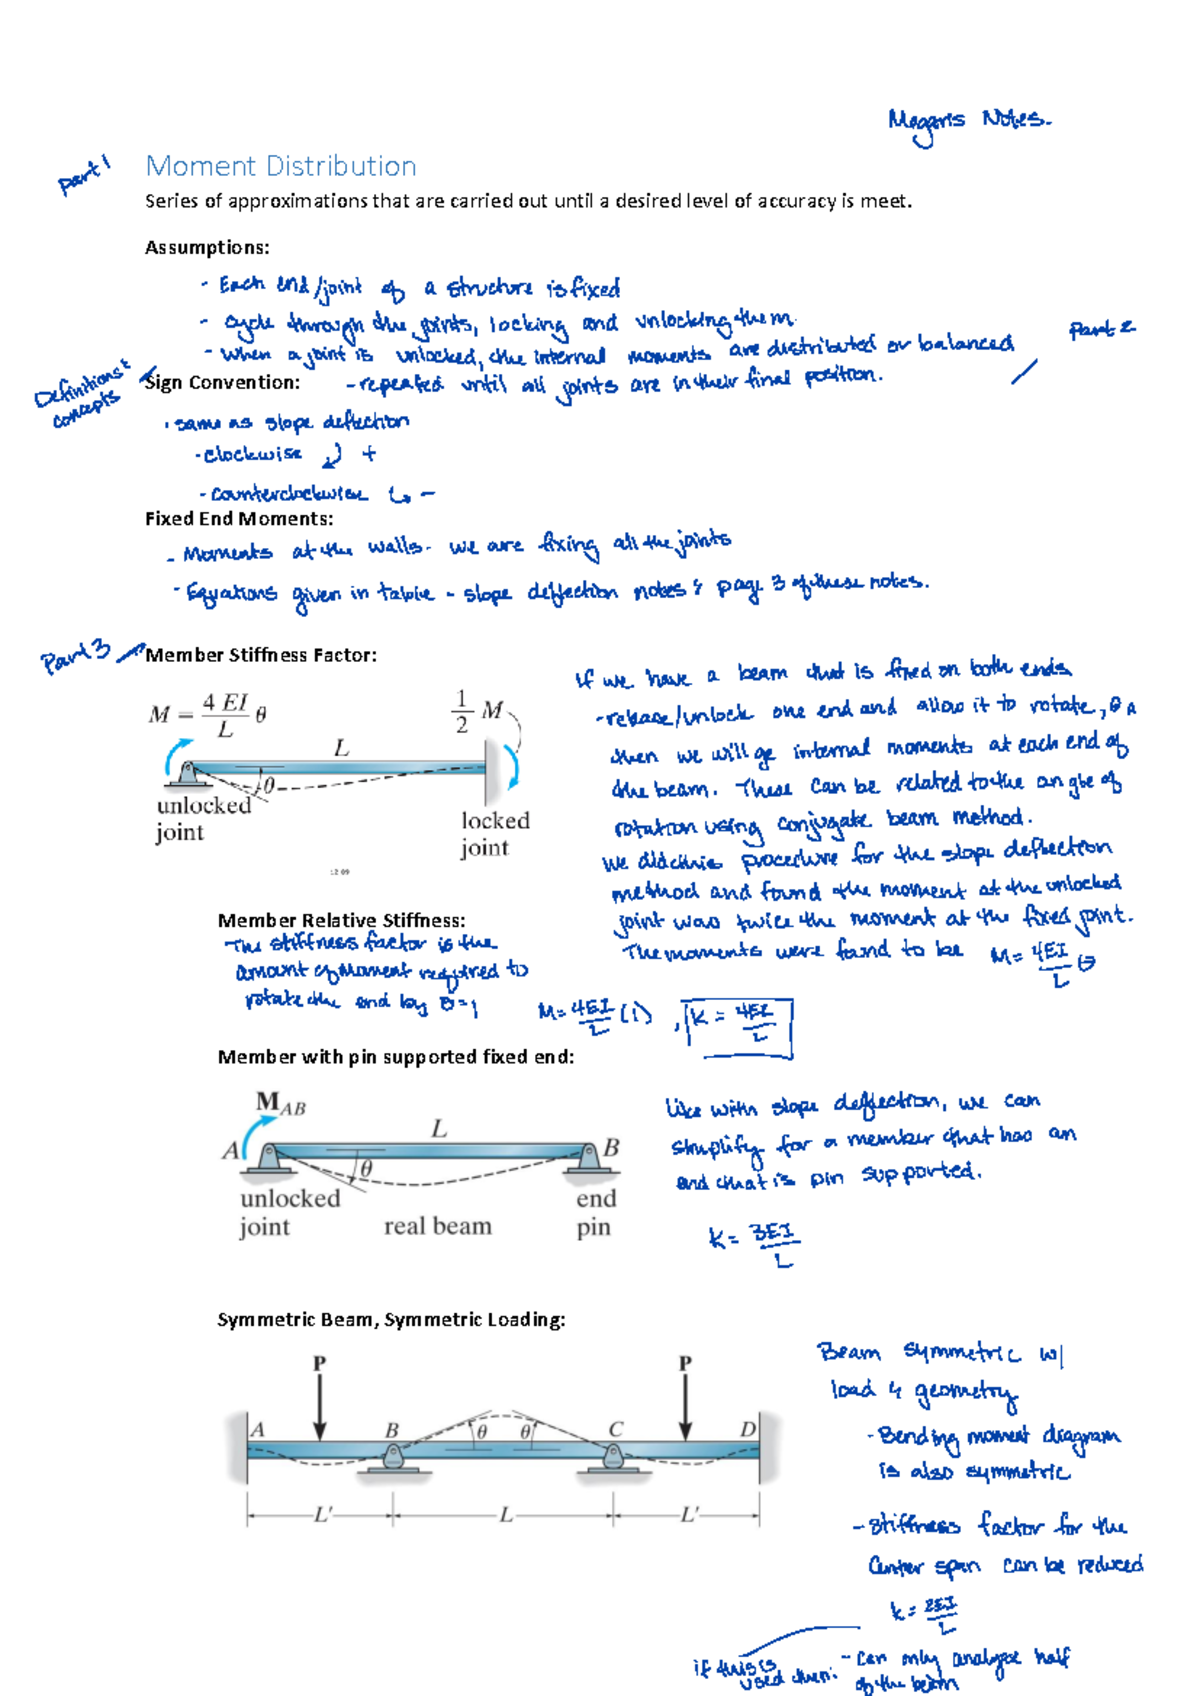 Megan's Notes.
Part 1
Moment Distribution
Series of approximations that are carried out until a desired level of accuracy is meet.
Assumptions:
- Each end/joint of a structure is fixed
- Cycle through the joints, locking and unlocking them.
- When a joint is unlocked, the internal moments are distributed or balanced
Part 2
Definitions &
concepts
Sign Convention:
- repeated until all joints are in their final position.
· same as slope deflection
- clockwise +
- counterclockwise -
Fixed End Moments:
- Moments at the walls - we are fixing all the joints
- Equations given in table - slope deflection notes & page 3 of these notes.
Part 3
Member Stiffness Factor:
M = 4 EI/L θ
1/2 M
L
θ
unlocked
joint
locked
joint
12-09
If we have a beam that is fixed on both ends
- release/unlock one end and allow it to rotate, θA
then we will ge internal moments at each end of
the beam. These can be related to the angle of
rotation using conjugate beam method.
We did this procedure for the slope deflection
method and found the moment at the unlocked
joint was twice the moment at the fixed joint.
The moments were found to be M = 4EI/L θ
Member Relative Stiffness:
- The stiffness factor is the
amount of moment required to
rotate the end by θ=1
M = 4EI/L (1) , k = 4EI/L
Member with pin supported fixed end:
M_AB
A
L
B
θ
unlocked
joint
real beam
end
pin
Like with slope deflection, we can
simplify for a member that has an
end that is pin supported.
k = 3EI/L
Symmetric Beam, Symmetric Loading:
P
P
A
B
θ
θ
C
D
L′
L
L′
Beam symmetric w/
load & geometry
- Bending moment diagram
is also symmetric
- Stiffness factor for the
center span can be reduced
k = 2EI/L
if this is
used then:
- Can only analyze half
of the beam